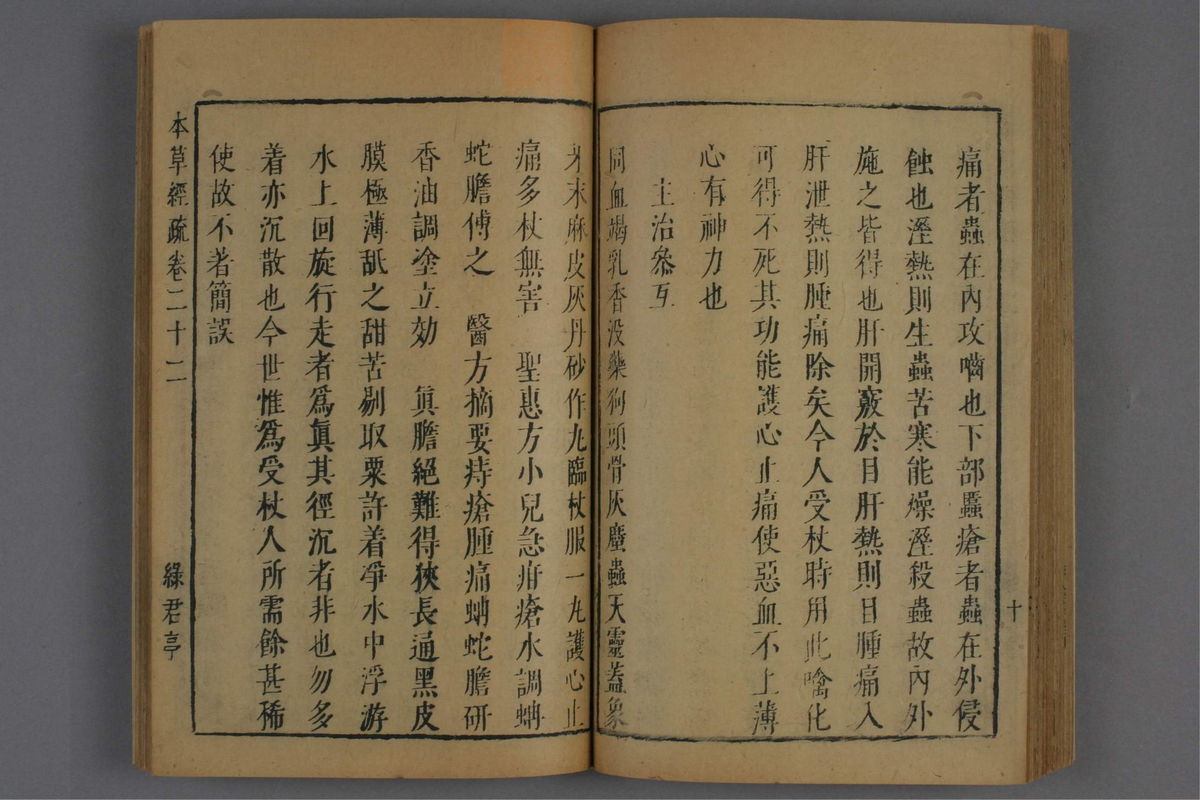 痛者蟲在內攻嚙也下部䘌瘡者蟲在外侵
蝕也溼熱則生蟲苦寒能燥溼殺蟲故內外
施之皆得也肝開竅於目肝熱則目腫痛入
肝泄熱則腫痛除矣今人受杖時用此噙化
可得不死其功能護心止痛使惡血不上薄
心有神力也
主治叅互
同血竭乳香沒藥狗頭骨灰䗪蟲天靈蓋象
牙末麻皮灰丹砂作丸臨杖服一丸護心止
痛多杖無害 聖惠方小兒急疳瘡水調蚺
蛇膽傅之 醫方摘要痔瘡腫痛蚺蛇膽研
香油調塗立効 眞膽絕難得狹長通黑皮
膜極薄舐之甜苦剔取粟許着淨水中浮游
水上回旋行走者爲眞其徑沉者非也勿多
着亦沉散也今世惟爲受杖人所需餘甚稀
使故不著簡誤
本草經疏卷二十二
綠君亭
十